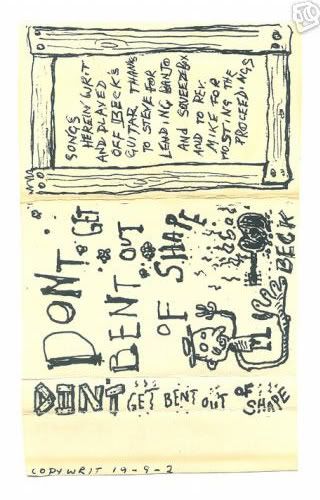 SONGS
HEREIN WRIT
AND PLAYED
OFF BECK'S
GUITAR, THANKS
TO STEVE FOR
LENDING BANJO
AND SQUEEZEBOX
AND TO REV.
MIKE FOR
HOSTING THE
PROCEEDINGS
DON'T GET
BENT OUT
OF SHAPE
BECK
DON'T GET BENT OUT OF SHAPE
COPYWRIT 19-9-2